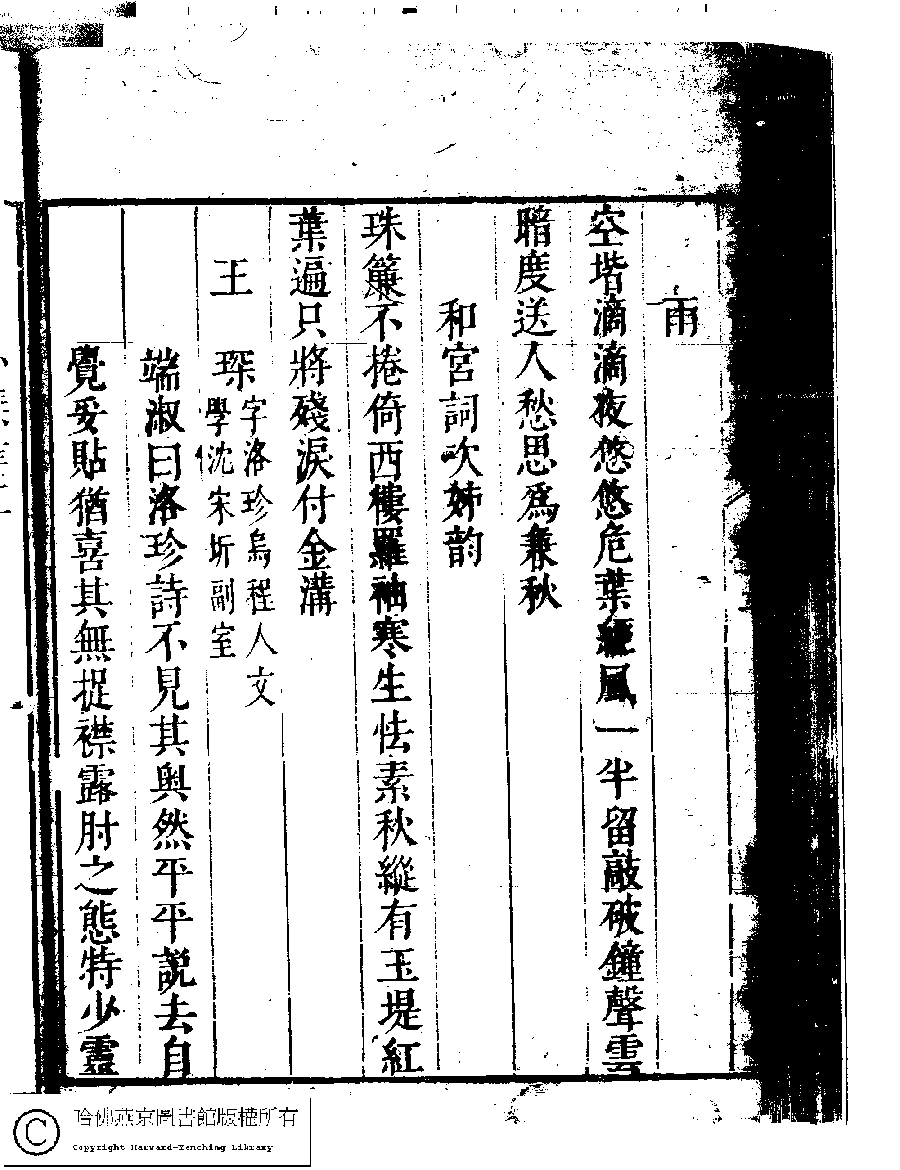 雨
空堦滴滴夜悠悠危葉經風一半留敲破鐘聲雲
暗度送人愁思爲兼秋
和宮詞次姊韵
珠簾不捲倚西樓羅袖寒生怯素秋縱有玉堤紅
葉遍只將殘淚付金溝
王琛
字洛珍烏程人文
學沈宋圻副室
端淑曰洛珍詩不見其奥然平平説去自
覺妥貼猶喜其無捉襟露肘之態特少靈
哈佛燕京圖書館版權所有
Copyright Harvard-Yenching Library